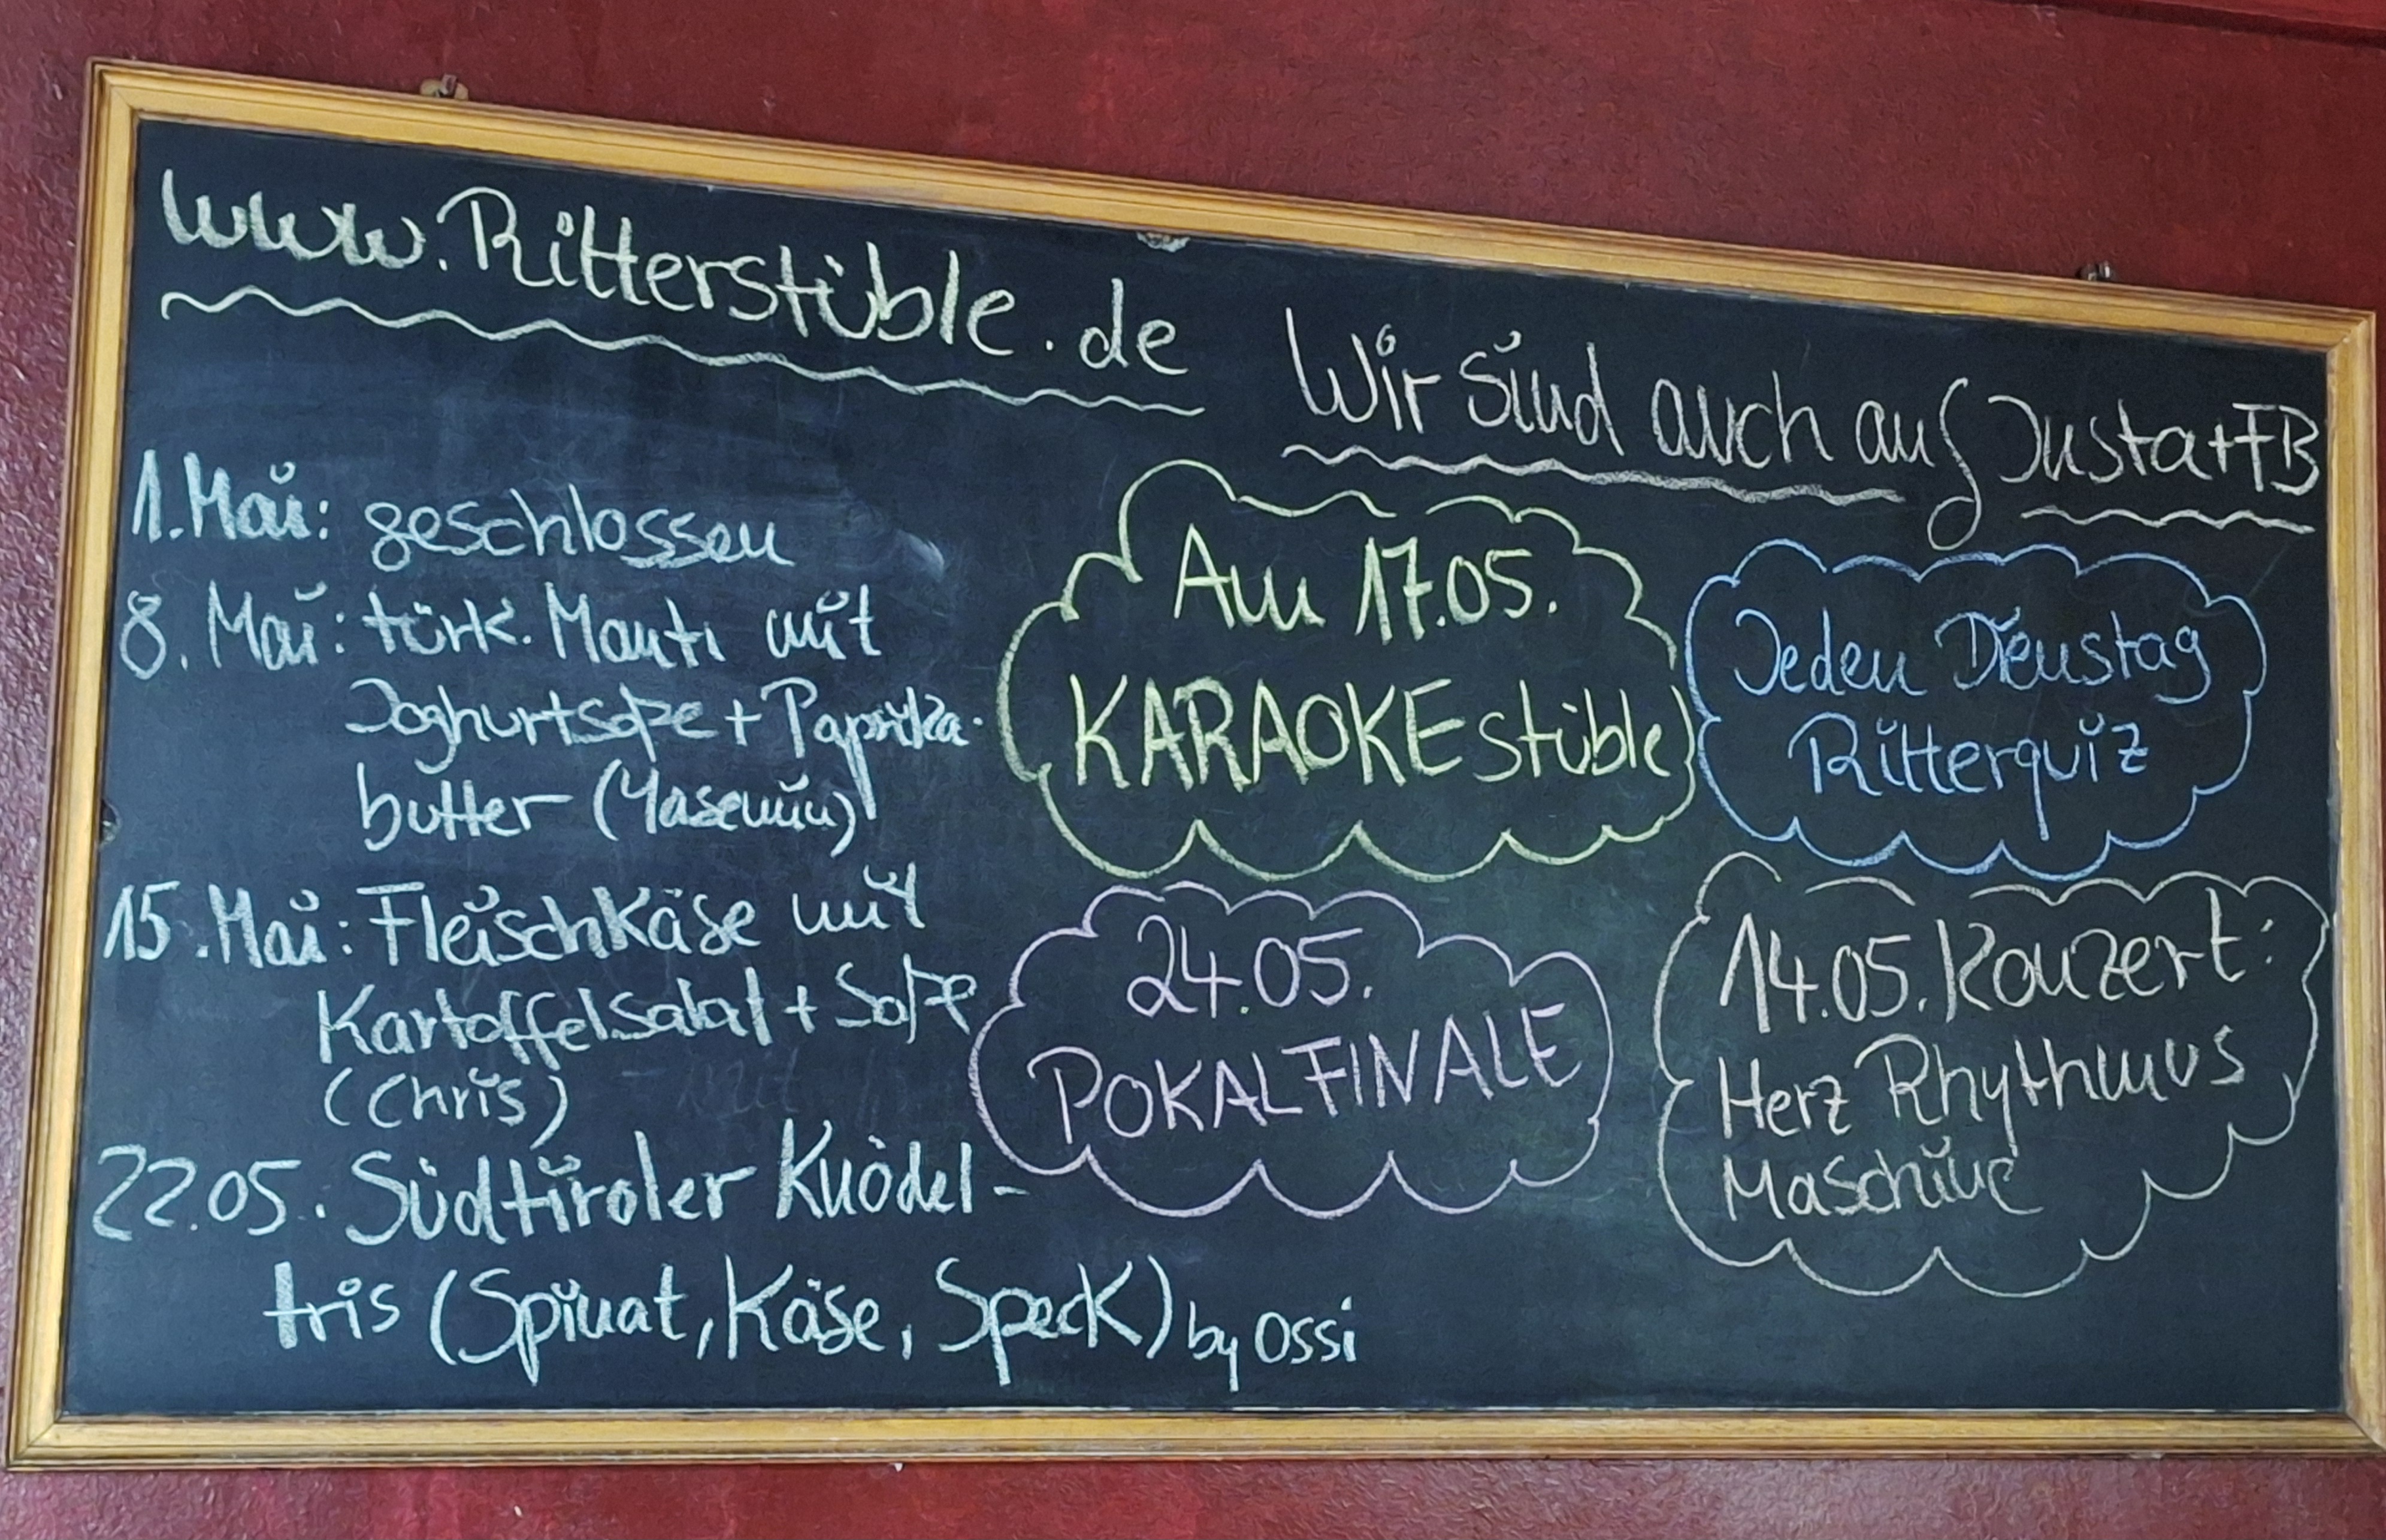 www.Ritterstüble.de
Wir sind auch auf Insta+FB
1.Mai: geschlossen
8. Mai: türk. Mantı mit
Joghurtsoße + Paprika-
butter (Yasemin)
15.Mai: Fleischkäse mit
Kartoffelsalat + Soße
(Chris)
22.05. Südtiroler Knödel-
tris (Spinat, Käse, Speck) by Ossi
Am 17.05.
KARAOKEstüble
Jeden Dienstag
Ritterquiz
24.05.
POKALFINALE
14.05. Konzert:
Herz Rhythmus
Maschine